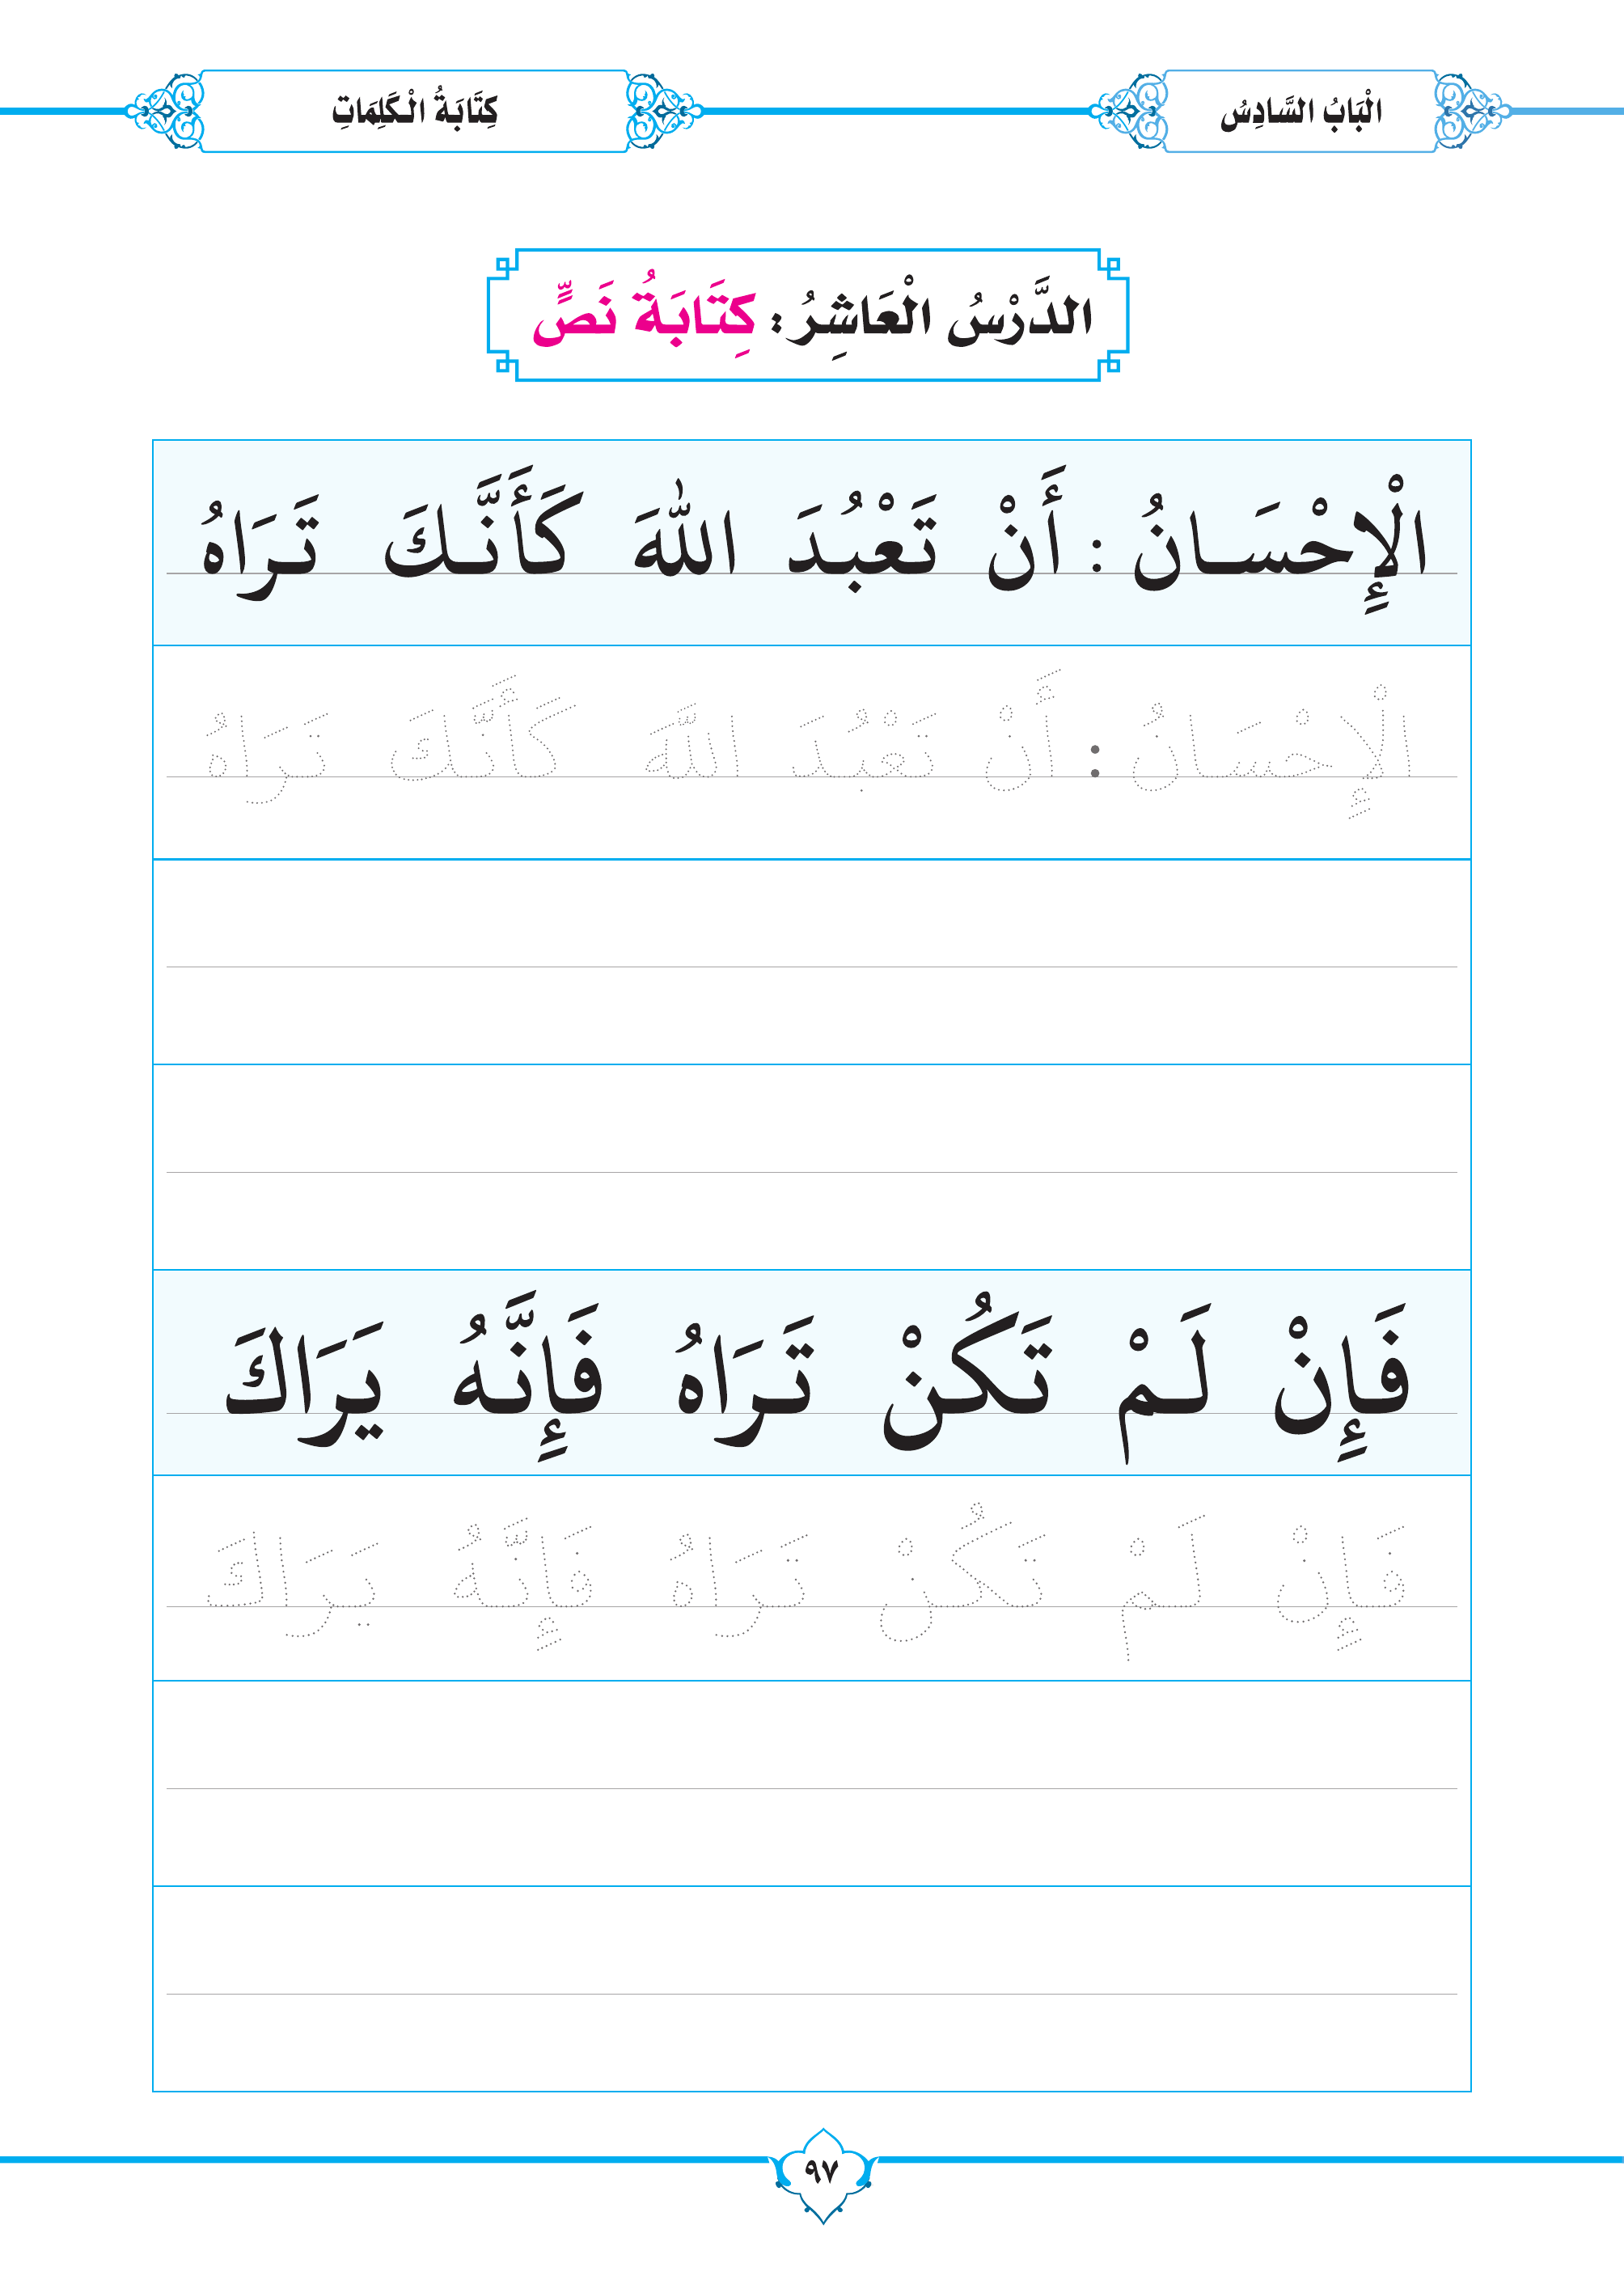 الْبَابُ السَّادِسُ
كِتَابَةُ الْكَلِمَاتِ
الدَّرْسُ الْعَاشِرُ: كِتَابَةُ نَصٍّ
الْإِحْسَانُ : أَنْ تَعْبُدَ اللهَ كَأَنَّكَ تَرَاهُ
الْإِحْسَانُ : أَنْ تَعْبُدَ اللهَ كَأَنَّكَ تَرَاهُ
فَإِنْ لَمْ تَكُنْ تَرَاهُ فَإِنَّهُ يَرَاكَ
فَإِنْ لَمْ تَكُنْ تَرَاهُ فَإِنَّهُ يَرَاكَ
٩٧